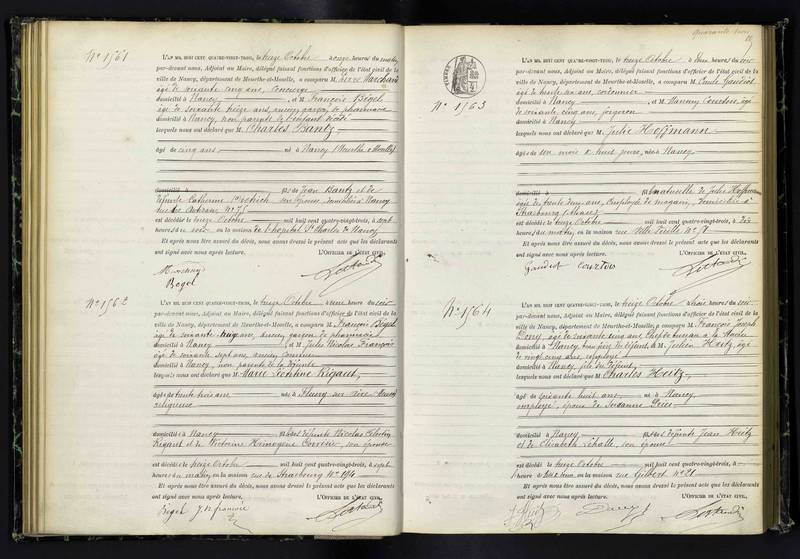 N° 1561
L'AN MIL HUIT CENT QUATRE-VINGT-TROIS, le treize Octobre à onze heures du matin,
par-devant nous, Adjoint au Maire, délégué faisant fonctions d'officier de l'état civil de la
ville de Nancy, département de Meurthe-et-Moselle, a comparu M. Pierre Marchand
âgé de soixante cinq ans, Concierge
domicilié à Nancy, et M. François Bégel
âgé de soixante treize ans, ancien garçon de pharmacie
domicilié à Nancy, non parents de l'enfant décédé
lesquels nous ont déclaré que M. Charles Bantz
âgé de cinq ans né à Nancy (Meurthe & Moselle)
domicilié à fils de Jean Bantz et de
défunte Catherine son épouse, domiciliés à Nancy
N° 75
est décédé le treize Octobre mil huit cent quatre-vingt-trois, à sept
heures du soir en la maison de l'hôpital St Charles de Nancy
Et après nous être assuré du décès, nous avons dressé le présent acte que les déclarants
ont signé avec nous après lecture. L'OFFICIER DE L'ÉTAT CIVIL,
Marchand
Bégel
N° 1562
L'AN MIL HUIT CENT QUATRE-VINGT-TROIS, le treize Octobre à deux heures du soir
par-devant nous, Adjoint au Maire, délégué faisant fonctions d'officier de l'état civil de la
ville de Nancy, département de Meurthe-et-Moselle, a comparu M. François Bégel
âgé de soixante treize ans, ancien garçon de pharmacie
domicilié à Nancy, et M. Jules Nicolas François
âgé de soixante sept ans, ancien
domicilié à Nancy, non parents de la défunte
lesquels nous ont déclaré que M. Marie Léontine Rigaut,
âgée de trente trois ans née à Fleury sur Aire (Meuse)
religieuse
domiciliée à Nancy fille des défunts Nicolas Célestin
Rigaut et de Victorine son épouse
est décédée le treize Octobre mil huit cent quatre-vingt-trois, à sept
heures du matin, en la maison rue de Strasbourg N° 194
Et après nous être assuré du décès, nous avons dressé le présent acte que les déclarants
ont signé avec nous après lecture. L'OFFICIER DE L'ÉTAT CIVIL,
Bégel J. N. françois
quarante-trois
N° 1563
L'AN MIL HUIT CENT QUATRE-VINGT-TROIS, le treize Octobre à deux heures du soir
par-devant nous, Adjoint au Maire, délégué faisant fonctions d'officier de l'état civil de la
ville de Nancy, département de Meurthe-et-Moselle, a comparu M. Emile Gaudiot
âgé de trente six ans, cordonnier
domicilié à Nancy, et M. Courtois, âgé
de soixante cinq ans, forgeron
domicilié à Nancy
lesquels nous ont déclaré que M. Julie Hoffmann
âgée de six mois & huit jours, née à Nancy
fille naturelle de Julie Hoffmann
âgée de trente deux ans, employée de magasin, domiciliée à
Strasbourg (Alsace)
est décédée le treize Octobre mil huit cent quatre-vingt-trois, à dix
heures du matin, en la maison rue
Et après nous être assuré du décès, nous avons dressé le présent acte que les déclarants
ont signé avec nous après lecture. L'OFFICIER DE L'ÉTAT CIVIL,
Gaudiot courtois
N° 1564
L'AN MIL HUIT CENT QUATRE-VINGT-TROIS, le treize Octobre à trois heures du soir
par-devant nous, Adjoint au Maire, délégué faisant fonctions d'officier de l'état civil de la
ville de Nancy, département de Meurthe-et-Moselle, a comparu M. François Joseph
âgé de soixante cinq ans chef de bureau à la Mairie
domicilié à Nancy, beau père du défunt, et M. Julien Heitz, âgé
de vingt cinq ans, employé
domicilié à Nancy, fils du défunt,
lesquels nous ont déclaré que M. Charles Heitz,
âgé de cinquante huit ans né à Nancy
employé, époux de Suzanne
domicilié à Nancy fils des défunts Jean Heitz
et de Elisabeth son épouse
est décédé le treize Octobre mil huit cent quatre-vingt-trois, à
en la maison rue Gilbert N° 21
Et après nous être assuré du décès, nous avons dressé le présent acte que les déclarants
ont signé avec nous après lecture. L'OFFICIER DE L'ÉTAT CIVIL,
J. Heitz